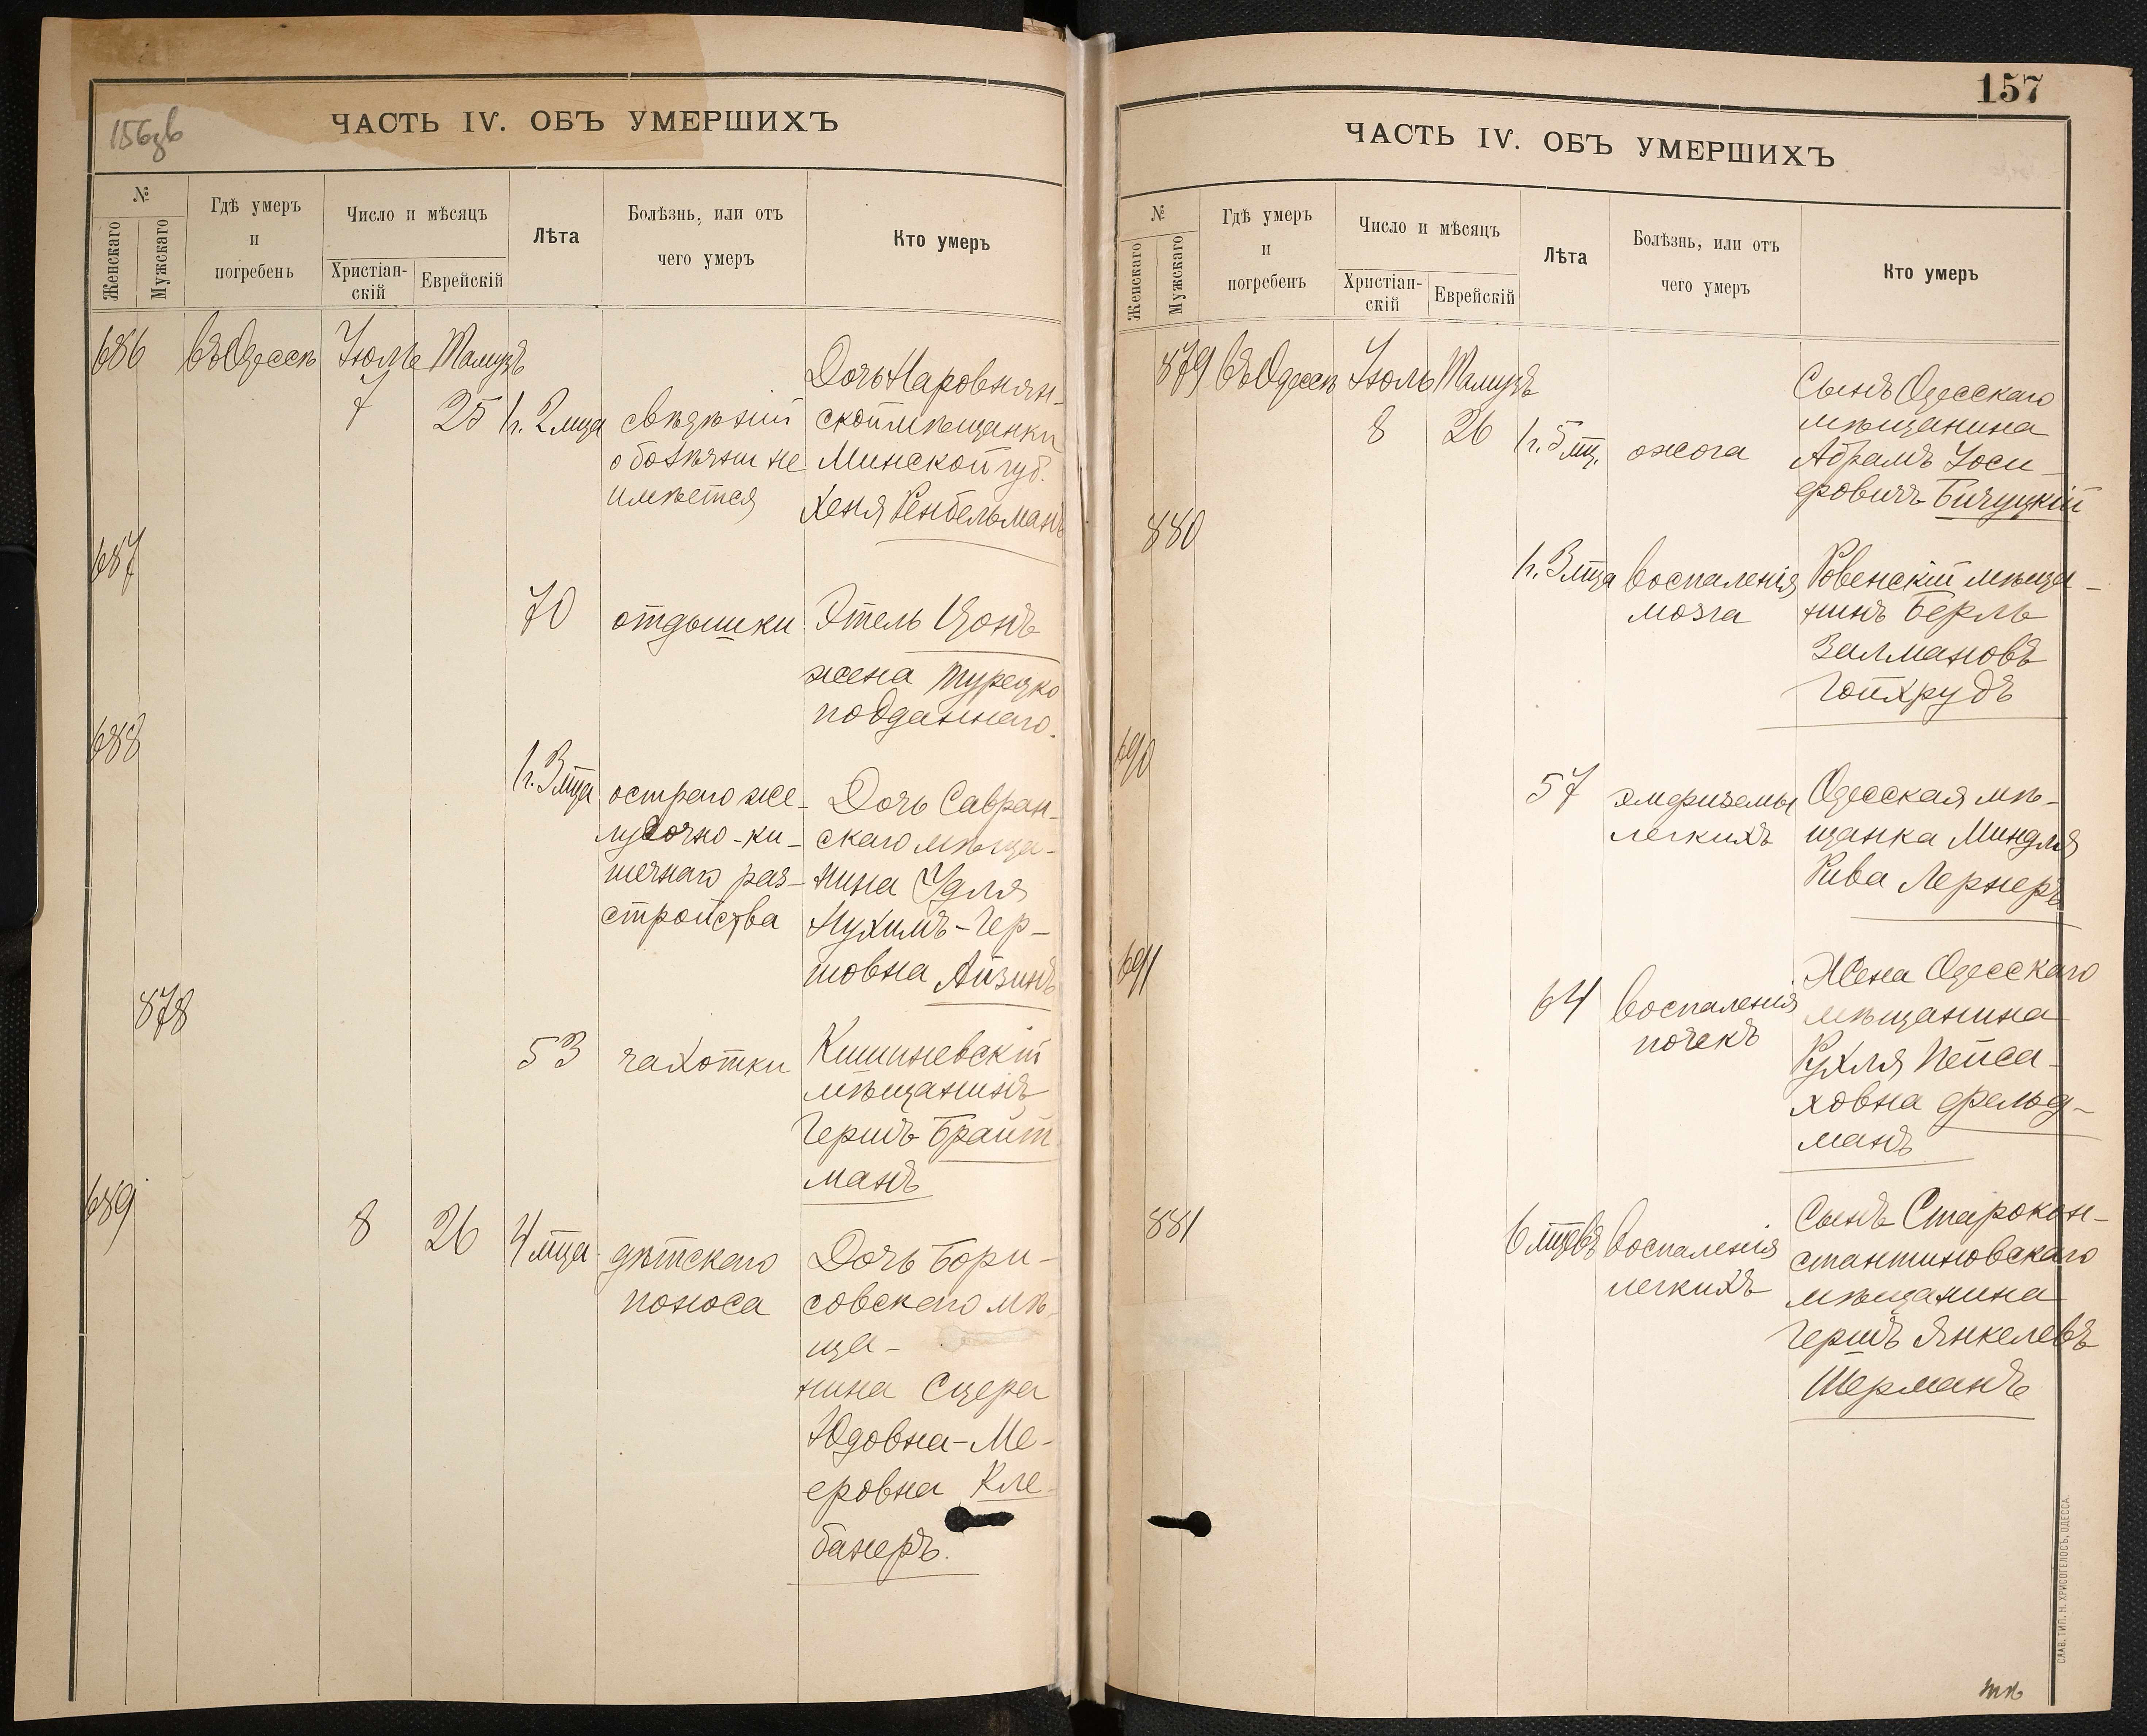 156зв
ЧАСТЬ IV. ОБЪ УМЕРШИХЪ
№
Женскаго
Мужскаго
Гдѣ умеръ
и
погребенъ
Число и мѣсяцъ
Христіан-
скій
Еврейскій
Лѣта
Болѣзнь, или отъ
чего умеръ
Кто умеръ
686 въ Одессѣ Іюль Тамузъ
7 25 1г. 2 мца
свѣдѣній
о болѣзни не
имѣется
Дочь Наровлян-
ской мѣщанки
Минской губ.
Хеня Ренбельманъ
687
70 отдышки Этель Цонъ
жена турецко
подданнаго.
688
1г. 3 мца
остраго же-
лудочно-ки-
шечнаго раз-
стройства
Дочь Савран-
скаго мѣща-
нина Удля
Нухимъ-Гер-
шовна Айзинъ
878
53 чахотки
Кишиневскій
мѣщанинъ
Гершъ Брайт
манъ
689
8 26 4 мца
дѣтскаго
поноса
Дочь Бори-
совскаго мѣ-
ща-
нина Сцера
Юдовна-Ме-
еровна Кле-
банеръ.
157
ЧАСТЬ IV. ОБЪ УМЕРШИХЪ
№
Женскаго
Мужскаго
Гдѣ умеръ
и
погребенъ
Число и мѣсяцъ
Христіан-
скій
Еврейскій
Лѣта
Болѣзнь, или отъ
чего умеръ
Кто умеръ
879 въ Одессѣ Іюль Тамузъ
8 26 1г. 5 мц. ожога
Сынъ Одесскаго
мѣщанина
Абрамъ Іоси-
фовичъ Бичуцкій
880
1г. 3 мца
воспаленія
мозга
Ровенскій мѣща-
нинъ Берль
Залмановъ
Гойхрудъ
690
57
эмфиземы
легкихъ
Одесская мѣ-
щанка Миндля
Рива Лернеръ
691
64
воспаленія
почекъ
Жена Одесскаго
мѣщанина
Рухля Пейса-
ховна Фельд-
манъ
881
6 мцевъ
воспаленія
легкихъ
Сынъ Старокон-
стантиновскаго
мѣщанина
Гершъ Янкелевъ
Шерманъ
СЛАВ. ТИП. Н. ХРИСОГЕЛОСЪ, ОДЕССА.